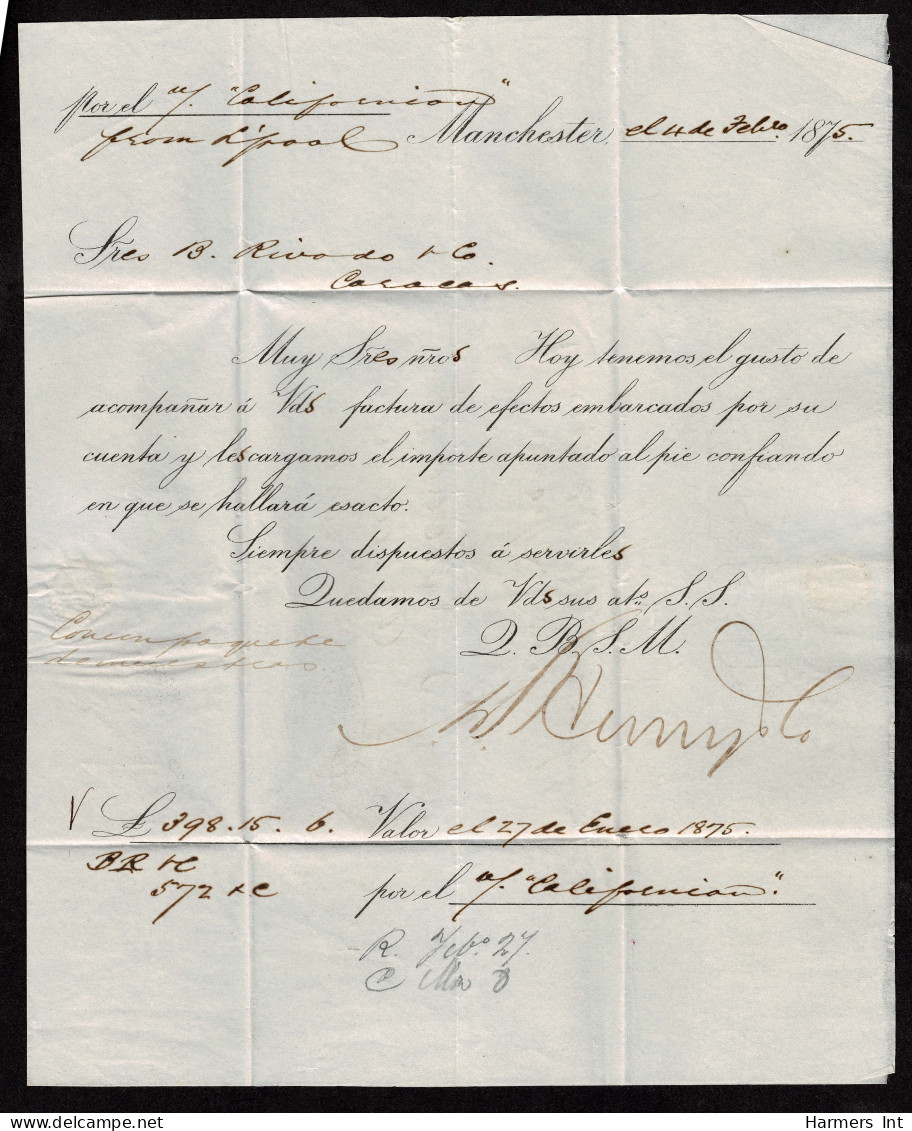 por el v/. "Californian"
from L'pool Manchester, el 4 de Febro. 1875.
Sres B. Rivodo & Co.
Caracas.
Muy Sres nros Hoy tenemos el gusto de
acompañar á Vds factura de efectos embarcados por su
cuenta y les cargamos el importe apuntado al pie confiando
en que se hallará esacto.
Siempre dispuestos á servirles
Quedamos de Vds sus ats. S. S.
Q. B. S. M.
Con un paquete
de muestras.
£ 398.15.6. Valor el 27 de Enero 1875.
BR & C
572 & C
por el v/. "Californian".
R. Febo 27.
C Mzo 8
Harmers Int